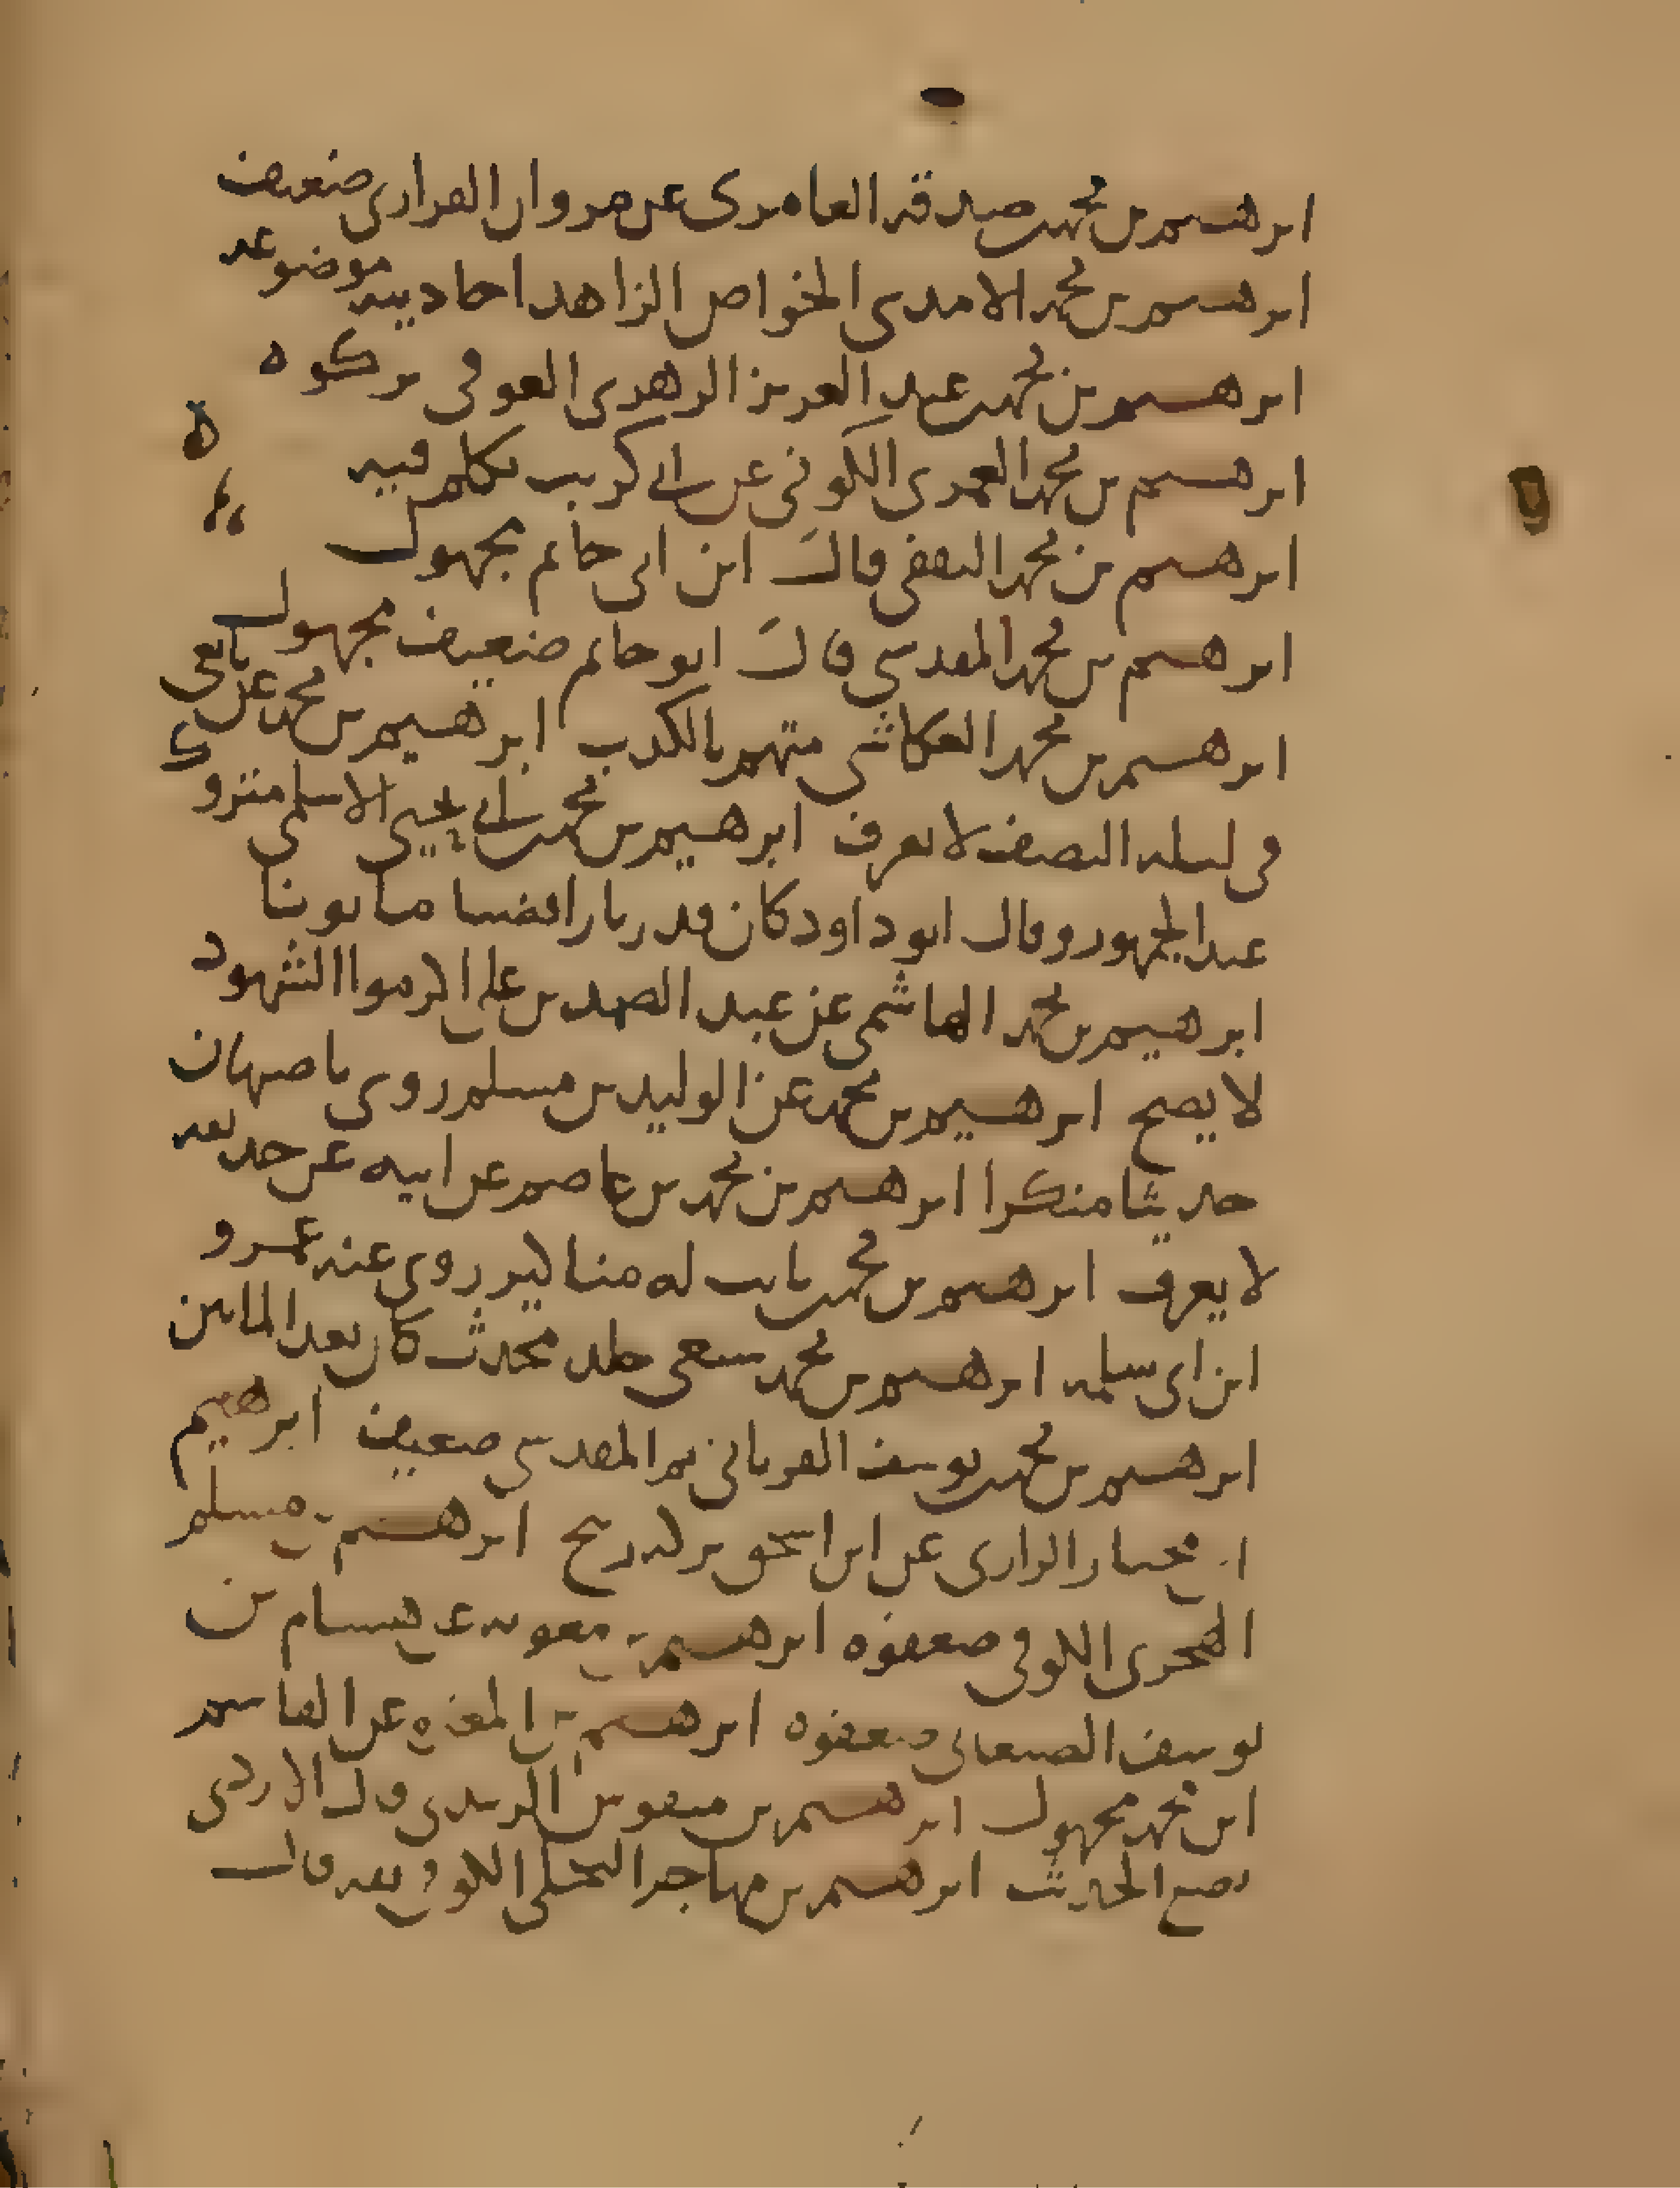 ابرهيم بن محمد بن صدقة العامري عن مروان الفزاري ضعيف
ابرهيم بن محمد الامدي الخواص الزاهد احاديثه موضوعة
ابرهيم بن محمد بن عبد العزيز الزهري العوفي تركوه
ابرهيم بن محمد العمري الكوفي عن ابي كريب تكلم فيه
ابرهيم بن محمد الثقفي قال ابن ابي حاتم مجهول
ابرهيم بن محمد المقدسي قال ابو حاتم ضعيف مجهول
ابرهيم بن محمد العكاشي متهم بالكذب ابرهيم بن محمد عن
في ليلة النصف لا يعرف ابرهيم بن محمد بن ابي يحيى الاسلمي متروك
عند الجمهور وقال ابو داود كان قدريا رافضيا مابونا
ابرهيم بن محمد الهاشمي عن عبد الصمد بن علي اكرموا الشهود
لا يصح ابرهيم بن محمد عن الوليد بن مسلم روى باصبهان
حديثا منكرا ابرهيم بن محمد بن عاصم عن ابيه عن حذيفة
لا يعرف ابرهيم بن محمد بن ثابت له مناكير روى عنه عمرو
ابن ابي سلمة ابرهيم بن محمد محدث كان بعد المائتين
ابرهيم بن محمد بن يوسف الفريابي ثم المقدسي ضعيف ابرهيم
ابن مختار الرازي عن ابن اسحق ابرهيم بن مسلم
الهجري الكوفي ضعفوه ابرهيم بن معوية عن هشام بن
يوسف الصنعاني ضعفوه ابرهيم بن عن القاسم
ابن محمد مجهول ابرهيم بن منقوش الزبيدي قال الازدي
يضع الحديث ابرهيم بن مهاجر البجلي الكوفي ثقة قال